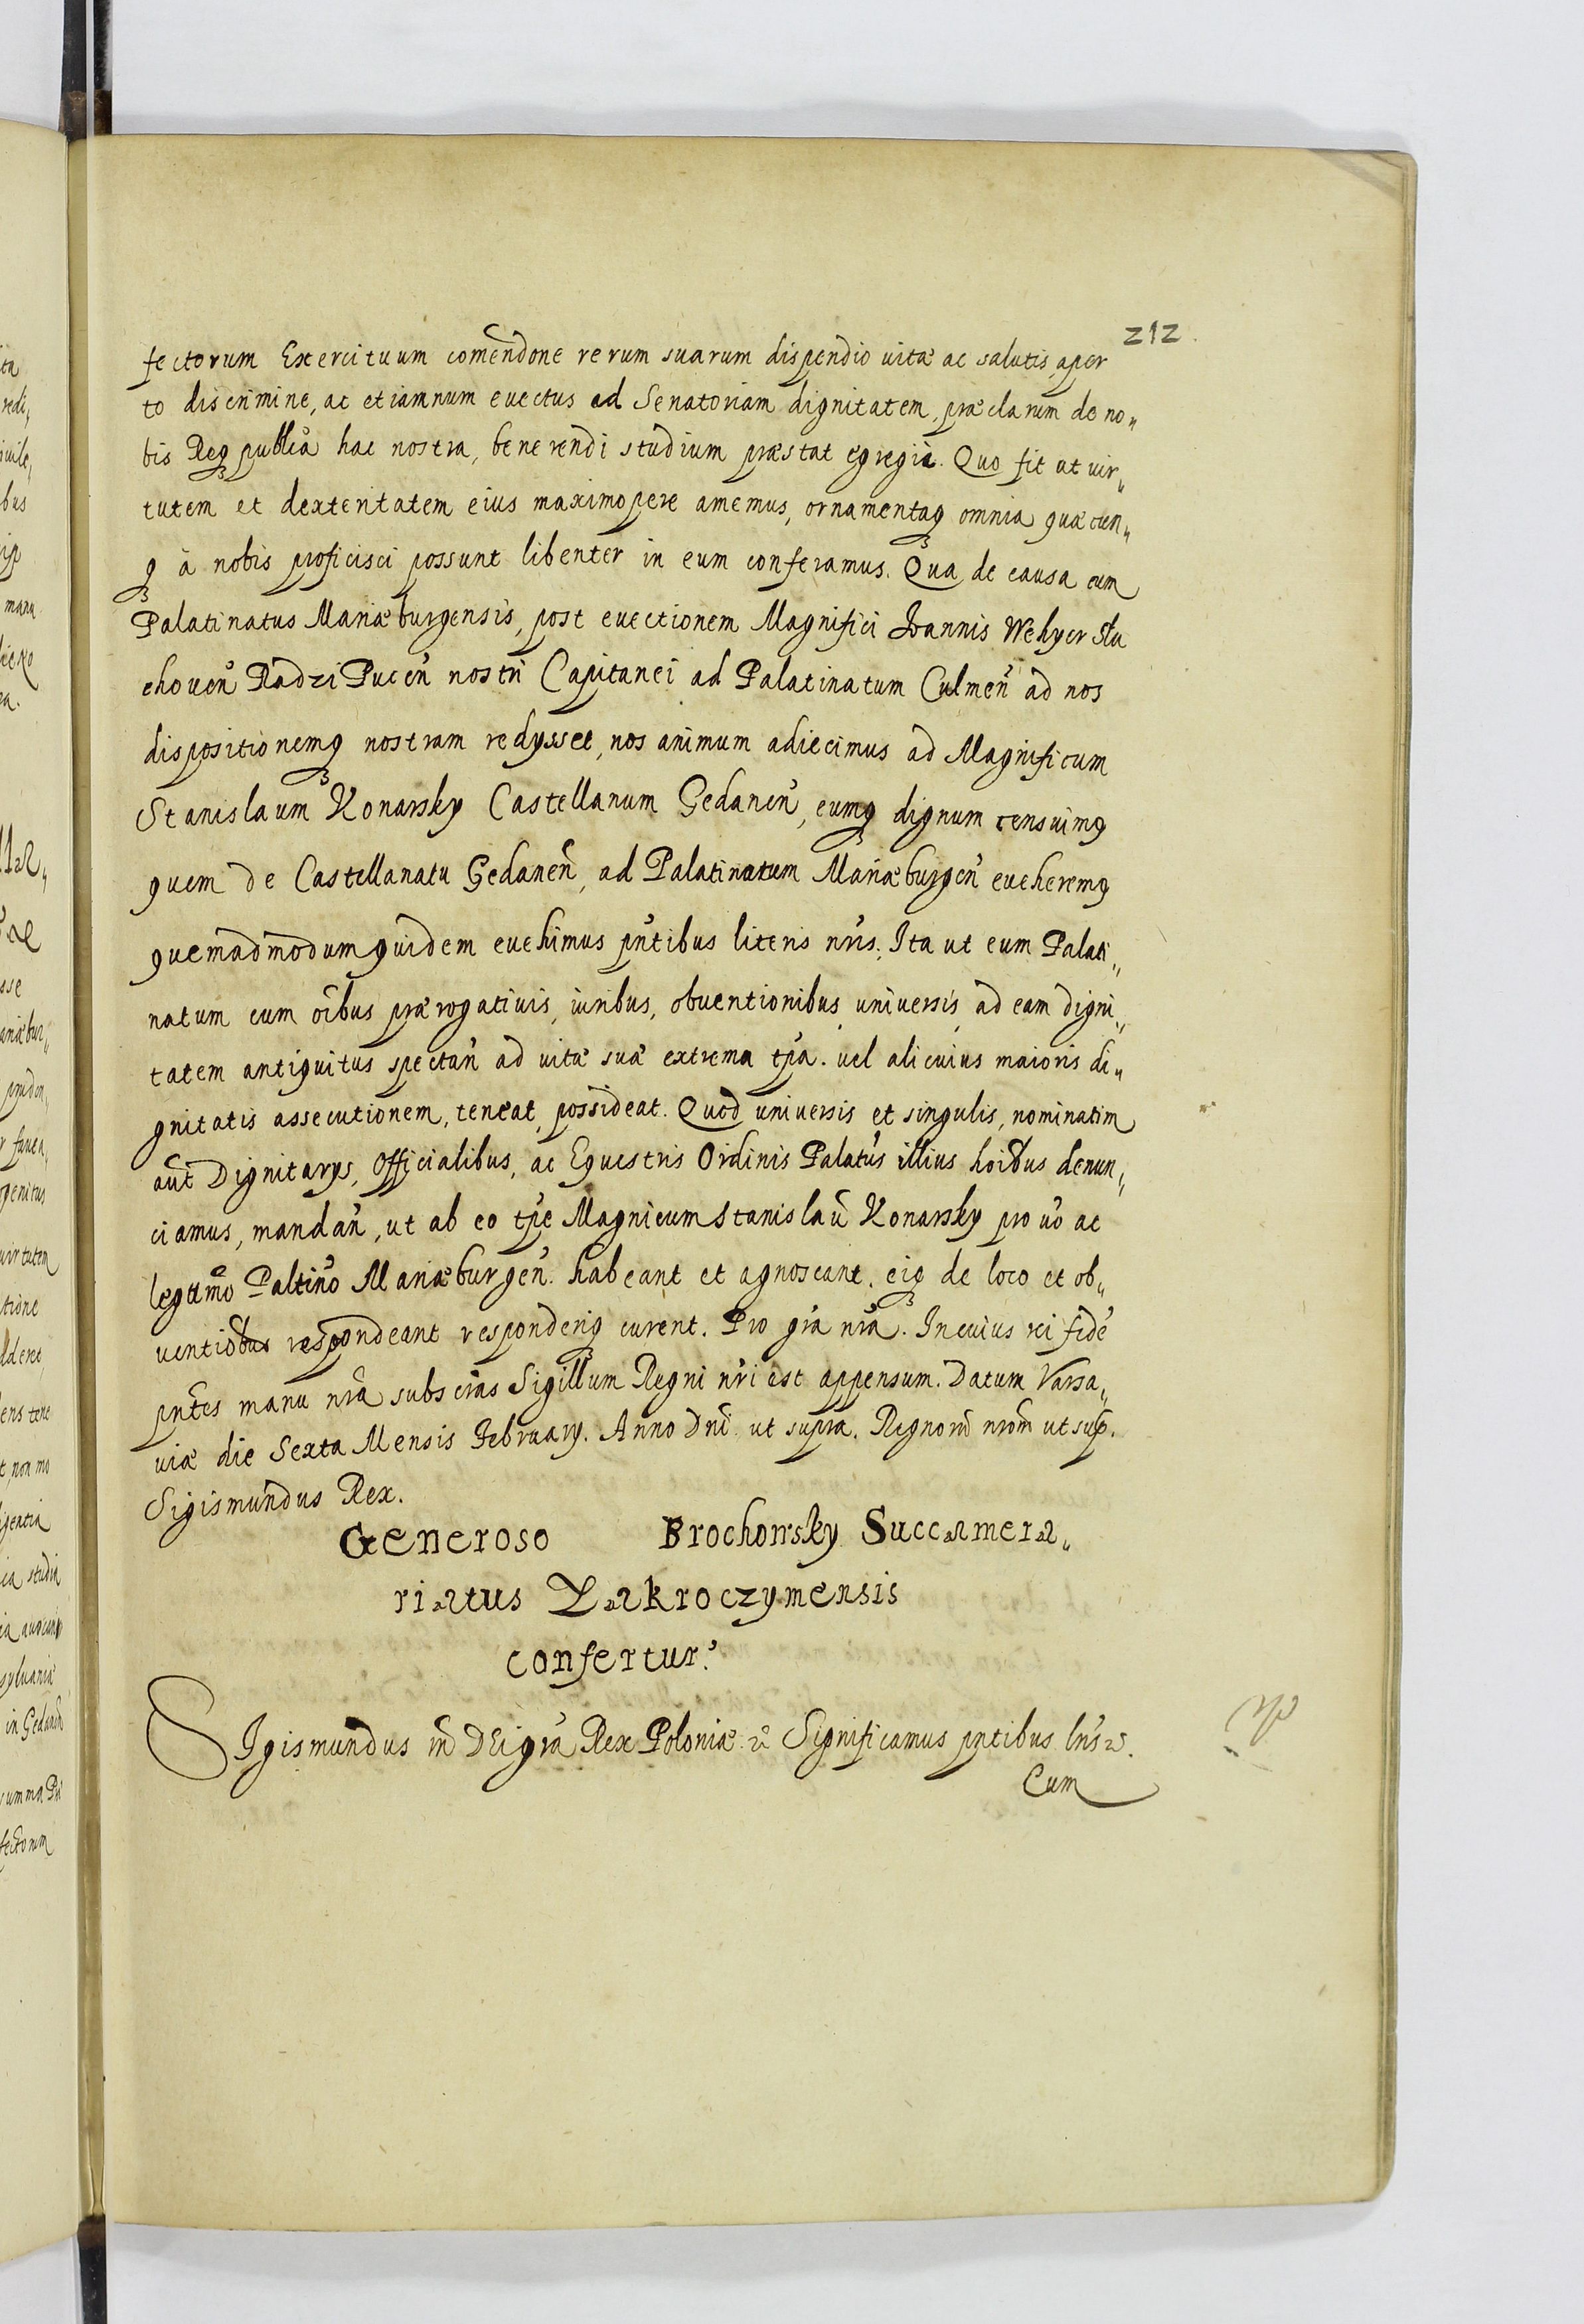 212.
fectorum Exercituum comendõne rerum suarum dispendio uitæ ac salutis, aper
to discrimine, ac etiamnum euectus ad Senatoriam dignitatem, præclarum de no„
bis Reqꝫ publĩa hac nostra, benerendi studium præstat egregiè. Quo fit ut uir„
tutem et dexteritatem eius maximopere amemus, ornamentaqꝫ omnia quæcun„
qꝫ à nobis proficisci possunt libenter in eum conferamus. Qua de causa cum
Palatinatus Mariæburgensis, post euectionem Magnifici Joannis Wehyer Slu
chouen̄ Radzi Pucen̄ nostri Capitanei ad Palatinatum Culmen̄ ad nos
dispositionemqꝫ nostram redysset, nos animum adiecimus ad Magnificum
Stanislaum Konarsky Castellanum Gedanen̄, eumqꝫ dignum censuimꝰ
quem de Castellanatu Gedanen̄, ad Palatinatum Mariæburgen̄ eueheremꝰ
quemadmodum quidem euehimus pñtibus literis nr̃is. Ita ut eum Palati„
natum cum oĩbus prærogatiuis, iuribus, obuentionibus uniuersis, ad eam digni„
tatem antiquitus spectan̄ ad uitæ suæ extrema tp̃a. uel alicuius maioris di„
gnitatis assecutionem, teneat, possideat. Quod uniuersis et singulis, nominatim
aũt Dignitarys, Officialibus, ac Equestris Ordinis Palatus̃ illius hoĩbus denun„
ciamus, mandan̄, ut ab eo tp̃e Magnicum Stanislaũ Konarsky pro uõ ac
legitimõ Paltinõ Mariæburgen̄. habeant et agnoscant. eiqꝫ de loco et ob„
uentiõbus respondeant responderiqꝫ curent. Pro gr̃a nr̃a. In cuius rei fidẽ
pñtes manu nr̃a subscras̃ Sigillum Regni nr̃i est appensum. Datum Varsa„
uiæ die Sexta Mensis February. Anno Dñi ut supra. Regnorũ nrorm̃ ut sup̃.
Sigismundus Rex.
Generoso Brochowsky Succamera„
riatus Zakroczymensis
confertur.
SIgismundus iii DEi gr̃a Rex Poloniæ ꝛc̃ Significamus pntibus lr̃is ꝛc̃.
Cum